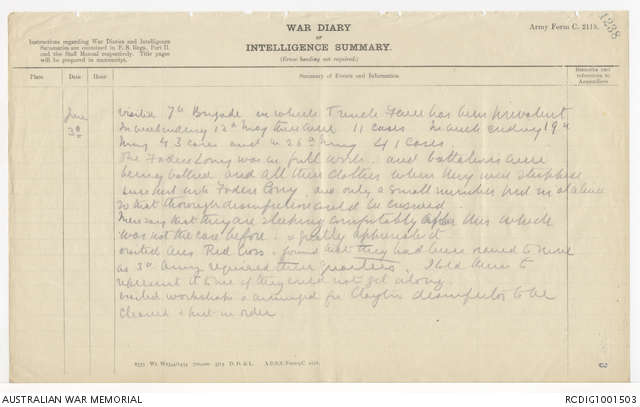 1238
WAR DIARY
or
INTELLIGENCE SUMMARY.
(Erase heading not required.)
Army Form C. 2118.
Instructions regarding War Diaries and Intelligence
Summaries are contained in F. S. Regs., Part II.
and the Staff Manual respectively. Title pages
will be prepared in manuscript.
Place Date Hour Summary of Events and Information Remarks and references to Appendices
June
3rd
Visited 7th Brigade in which Trench Fever has been prevalent
In week ending 12th May there were 11 cases In week ending 19th
May 43 cases and in 26th May 41 cases
The Foden Lorry was in full work and battalions were
being bathed and all their clothes when they were stripped
were put into Foden Lorry, and only a small number put in at a time
so that thorough disinfection could be ensured
Men say that they are sleeping comfortably after this which
was not the case before & greatly appreciate it
Visited Aus Red Cross & found that they had been ordered to move
as 3rd Army required their quarters. I told them to
represent it to me if they could not get along.
Visited workshops & arranged for Clayton disinfector to be
cleaned & put in order
3
AUSTRALIAN WAR MEMORIAL
RCDIG1001503